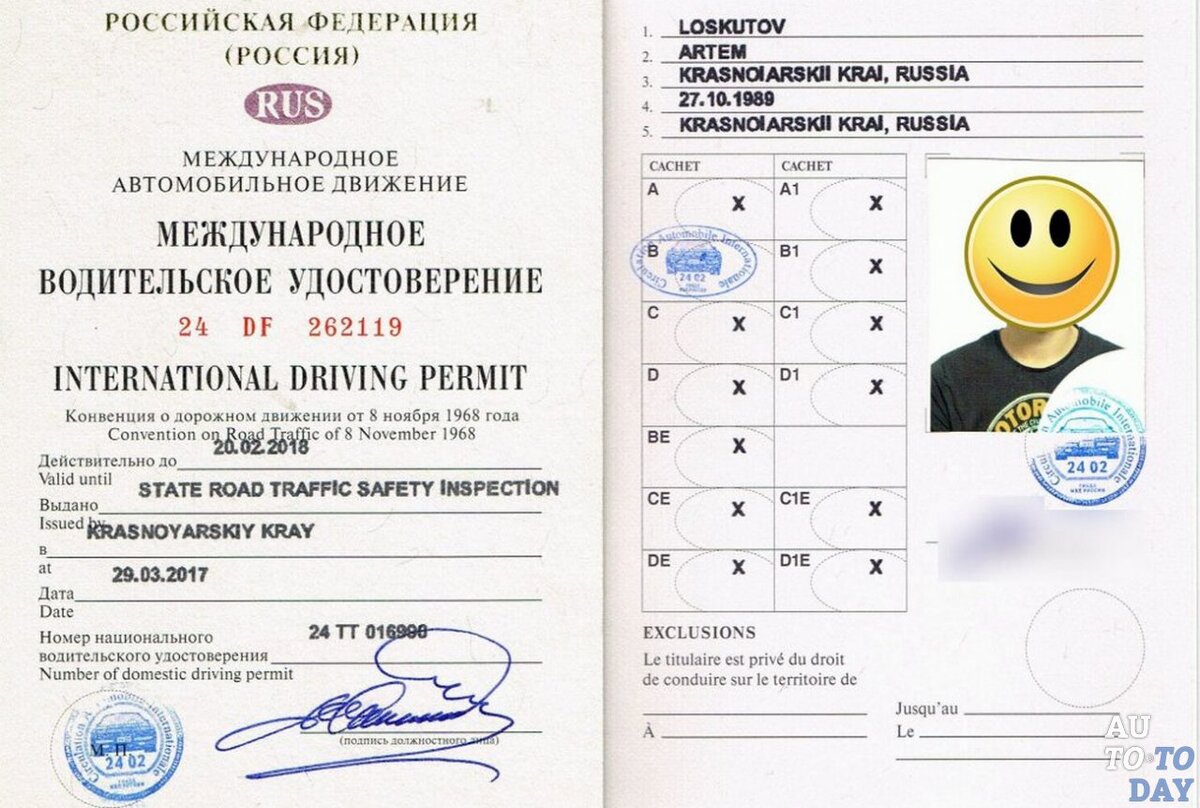 РОССИЙСКАЯ ФЕДЕРАЦИЯ
(РОССИЯ)
RUS
МЕЖДУНАРОДНОЕ
АВТОМОБИЛЬНОЕ ДВИЖЕНИЕ
МЕЖДУНАРОДНОЕ
ВОДИТЕЛЬСКОЕ УДОСТОВЕРЕНИЕ
24 DF 262119
INTERNATIONAL DRIVING PERMIT
Конвенция о дорожном движении от 8 ноября 1968 года
Convention on Road Traffic of 8 November 1968
Действительно до 20.02.2018
Valid until
Выдано STATE ROAD TRAFFIC SAFETY INSPECTION
Issued by
в KRASNOYARSKIY KRAY
at
Дата 29.03.2017
Date
Номер национального
водительского удостоверения 24 TT 016990
Number of domestic driving permit
(подпись должностного лица)
М. П.
Circulation Automobile Internationale
24 02
1. LOSKUTOV
2. ARTEM
3. KRASNOIARSKII KRAI, RUSSIA
4. 27.10.1989
5. KRASNOIARSKII KRAI, RUSSIA
CACHET CACHET
A X A1 X
B B1 X
Circulation Automobile Internationale
24 02
C X C1 X
D X D1 X
BE X
CE X C1E X
DE X D1E X
MOTOR
Circulation Automobile Internationale
24 02
EXCLUSIONS
Le titulaire est privé du droit
de conduire sur le territoire de
Jusqu'au
À Le
AUTO TODAY